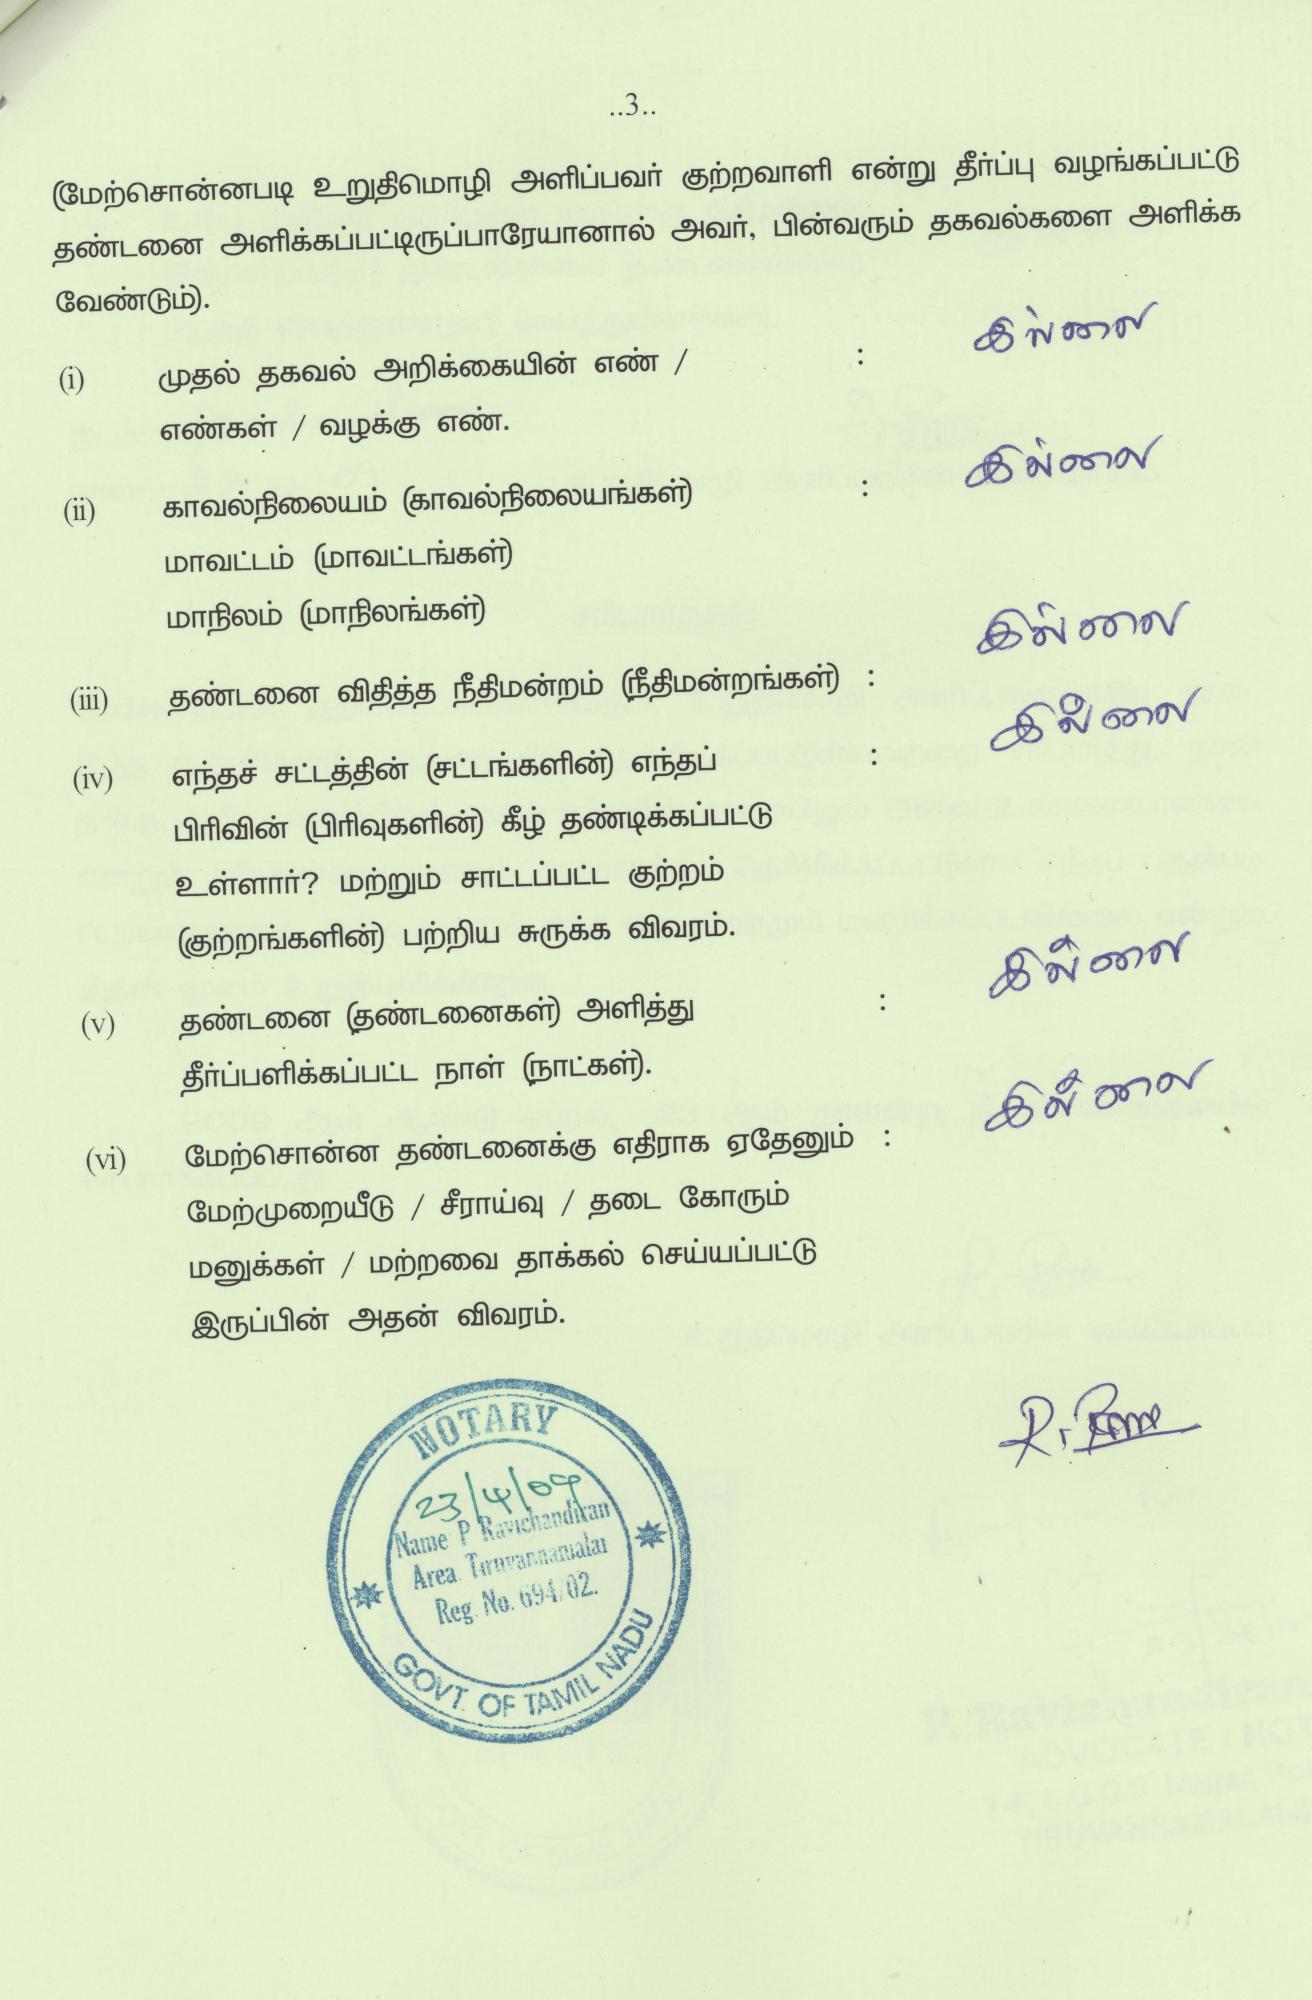 ..3..
(மேற்சொன்னபடி உறுதிமொழி அளிப்பவர் குற்றவாளி என்று தீர்ப்பு வழங்கப்பட்டு
தண்டனை அளிக்கப்பட்டிருப்பாரேயானால் அவர், பின்வரும் தகவல்களை அளிக்க
வேண்டும்).
(i) முதல் தகவல் அறிக்கையின் எண் / : இல்லை
எண்கள் / வழக்கு எண்.
(ii) காவல்நிலையம் (காவல்நிலையங்கள்) : இல்லை
மாவட்டம் (மாவட்டங்கள்)
மாநிலம் (மாநிலங்கள்)
(iii) தண்டனை விதித்த நீதிமன்றம் (நீதிமன்றங்கள்) : இல்லை
(iv) எந்தச் சட்டத்தின் (சட்டங்களின்) எந்தப் : இல்லை
பிரிவின் (பிரிவுகளின்) கீழ் தண்டிக்கப்பட்டு
உள்ளார்? மற்றும் சாட்டப்பட்ட குற்றம்
(குற்றங்களின்) பற்றிய சுருக்க விவரம்.
(v) தண்டனை (தண்டனைகள்) அளித்து : இல்லை
தீர்ப்பளிக்கப்பட்ட நாள் (நாட்கள்).
(vi) மேற்சொன்ன தண்டனைக்கு எதிராக ஏதேனும் : இல்லை
மேற்முறையீடு / சீராய்வு / தடை கோரும்
மனுக்கள் / மற்றவை தாக்கல் செய்யப்பட்டு
இருப்பின் அதன் விவரம்.
NOTARY
23/4/09
Name: P Ravichandiran
Area. Tiruvannamalai
Reg. No. 694/02.
GOVT. OF TAMIL NADU